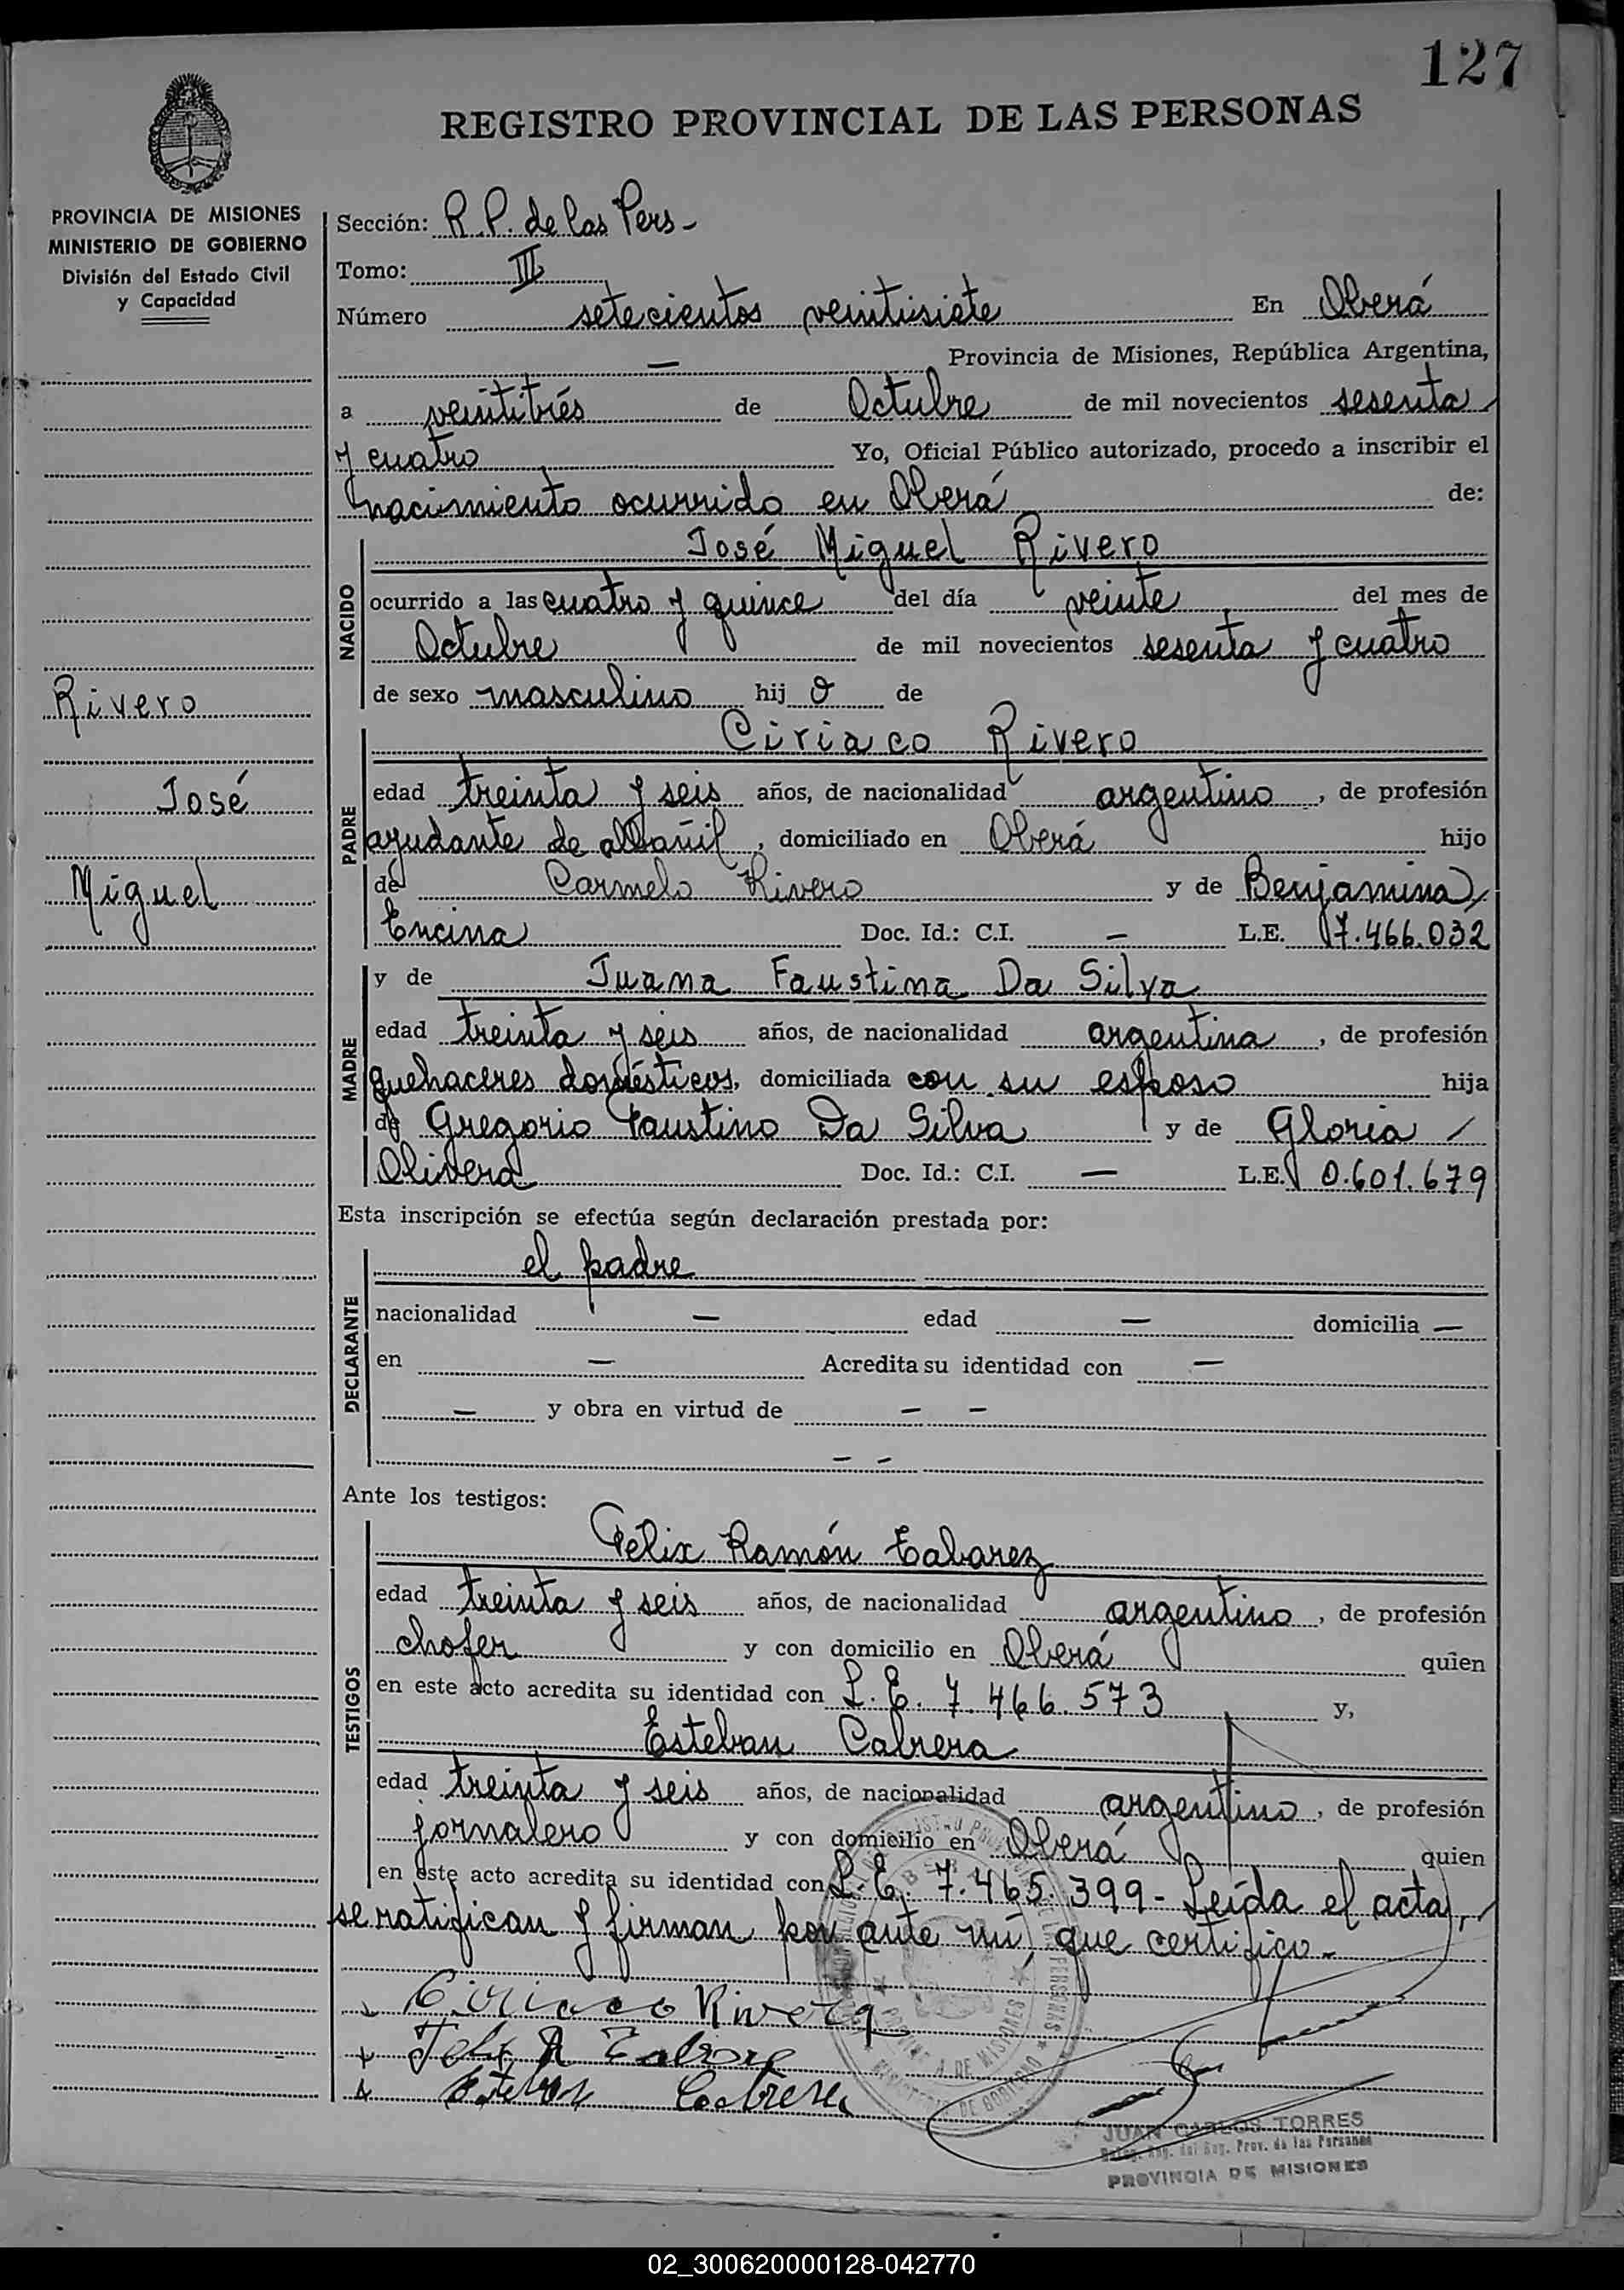 127
REGISTRO PROVINCIAL DE LAS PERSONAS
PROVINCIA DE MISIONES
MINISTERIO DE GOBIERNO
División del Estado Civil
y Capacidad
Sección: R.P. de las Pers-
Tomo: III
Número setecientos veintisiete En Oberá
— Provincia de Misiones, República Argentina,
a veintitrés de Octubre de mil novecientos sesenta
y cuatro Yo, Oficial Público autorizado, procedo a inscribir el
nacimiento ocurrido en Oberá de:
NACIDO
José Miguel Rivero
ocurrido a las cuatro y quince del día veinte del mes de
Octubre de mil novecientos sesenta y cuatro
de sexo masculino hij o de
Rivero
José
Miguel
PADRE
Ciriaco Rivero
edad treinta y seis años, de nacionalidad argentino, de profesión
ayudante de albañil, domiciliado en Oberá hijo
de Carmelo Rivero y de Benjamina
Encina Doc. Id.: C.I. — L.E. 7.466.032
MADRE
y de Juana Faustina Da Silva
edad treinta y seis años, de nacionalidad argentina, de profesión
quehaceres domésticos, domiciliada con su esposo hija
de Gregorio Faustino Da Silva y de Gloria /
Olivera Doc. Id.: C.I. — L.E. 0.601.679
Esta inscripción se efectúa según declaración prestada por:
DECLARANTE
el padre
nacionalidad — edad — domicilia —
en — Acredita su identidad con —
— y obra en virtud de — —
— —
Ante los testigos:
TESTIGOS
Felix Ramón Tabarez
edad treinta y seis años, de nacionalidad argentino, de profesión
chofer y con domicilio en Oberá quien
en este acto acredita su identidad con L.E. 7.466.573 y,
Esteban Cabrera
edad treinta y seis años, de nacionalidad argentino, de profesión
jornalero y con domicilio en Oberá quien
en este acto acredita su identidad con L.E. 7.465.399- Leída el acta,
se ratifican y firman por ante mí, que certifico-
Ciriaco Rivero
Felix R
Esteban Cabrera
PROVINCIA DE MISIONES
MINISTERIO DE GOBIERNO
JUAN CARLOS TORRES
Reg. Prov. de las Personas
PROVINCIA DE MISIONES
02_300620000128-042770